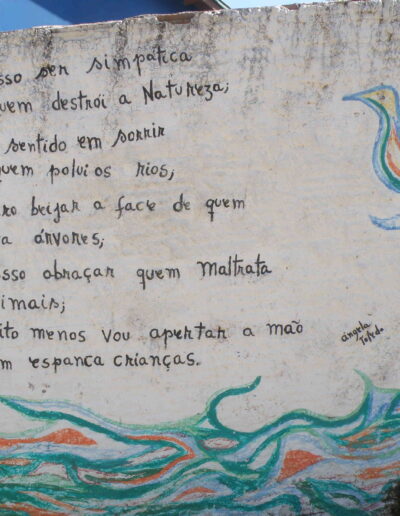 sso ser simpatica
uem destrói a Natureza;
sentido em sorrir
quem polui os rios,
ro beijar a face de quem
a árvores;
sso abraçar quem maltrata
imais;
ito menos vou apertar a mão
m espanca crianças.
angela
Toledo